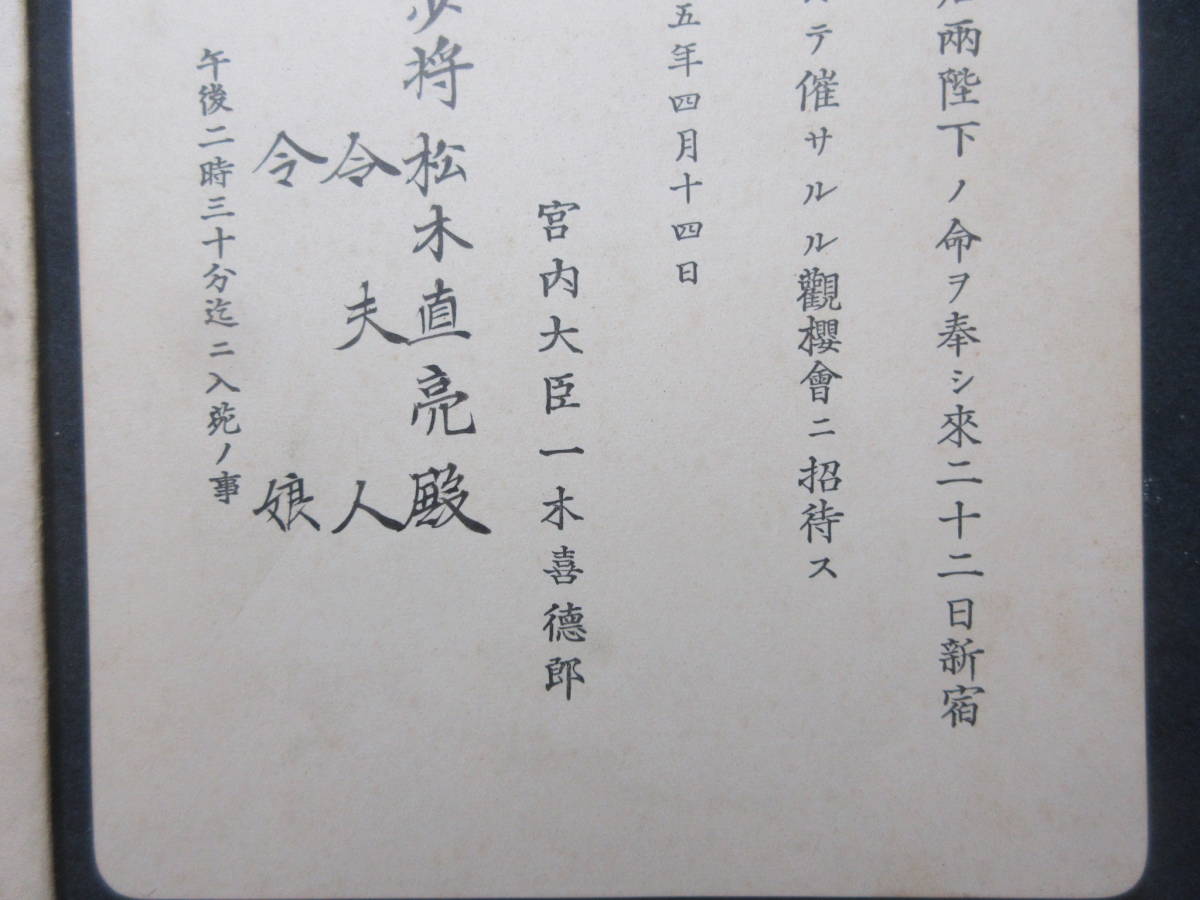 兩陛下ノ命ヲ奉シ來二十二日新宿
テ催サルル觀櫻會ニ招待ス
五年四月十四日
宮内大臣一木喜德郎
少将松木直亮殿
令夫人
令娘
午後二時三十分迄ニ入苑ノ事